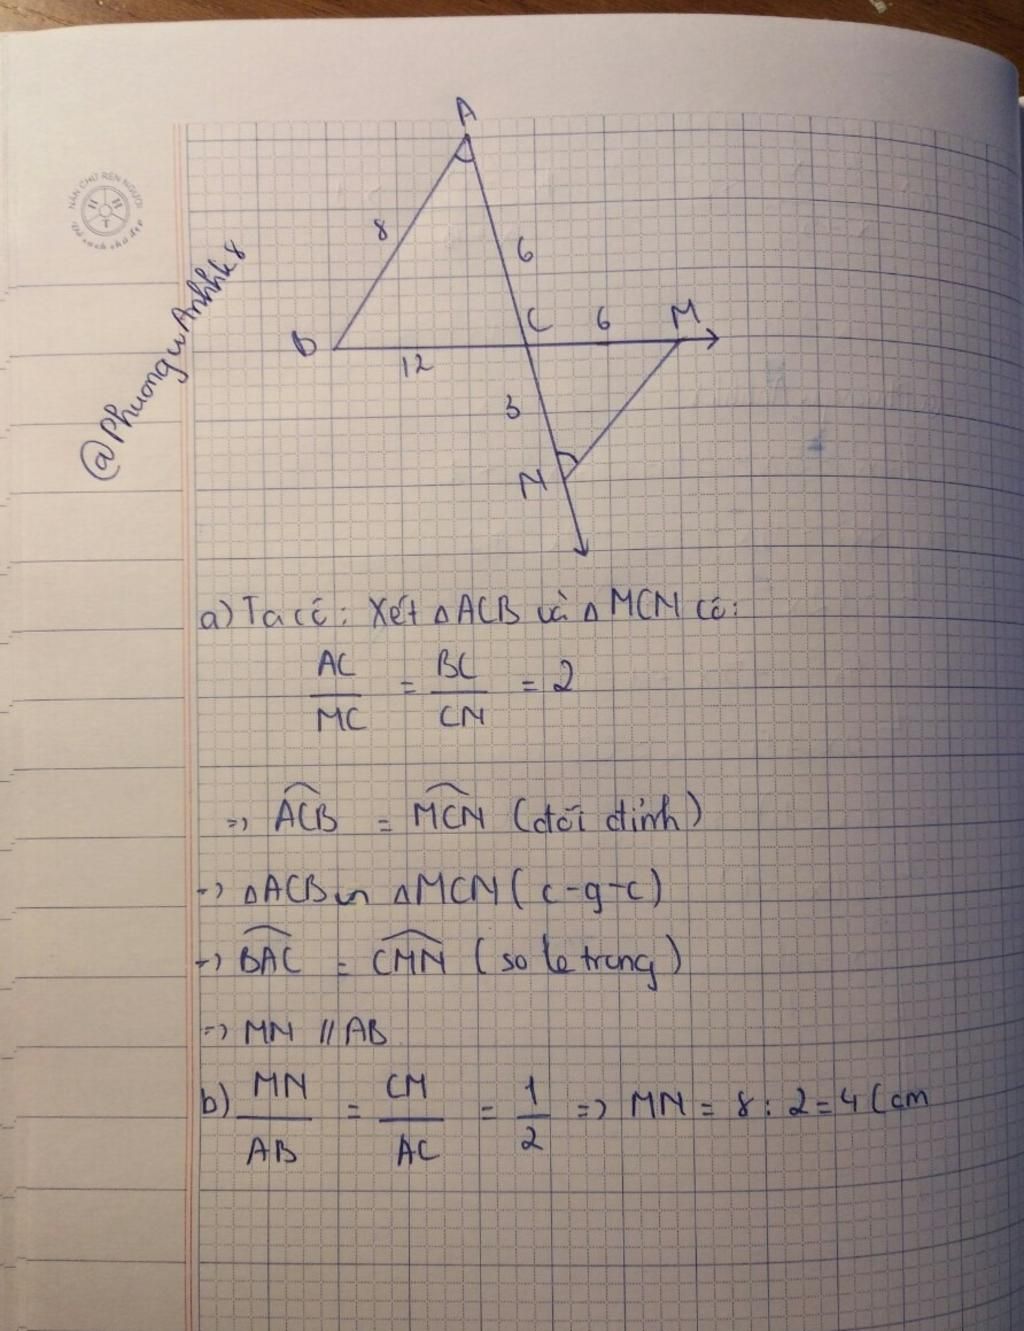 NẮN CHỮ RÈN NGƯỜI
H H
T
Vở sạch chữ đẹp
@PhuongwAnhhk8
A
8
6
B
12
C
6
M
3
N
a) Ta có: Xét ΔACB và ΔMCN có:
AC/MC = BC/CN = 2
=> ACB = MCN (đối đỉnh)
=> ΔACB ∽ ΔMCN (c-g-c)
=> BAC = CMN (so le trong)
=> MN // AB
b) MN/AB = CM/AC = 1/2 => MN = 8 : 2 = 4 (cm